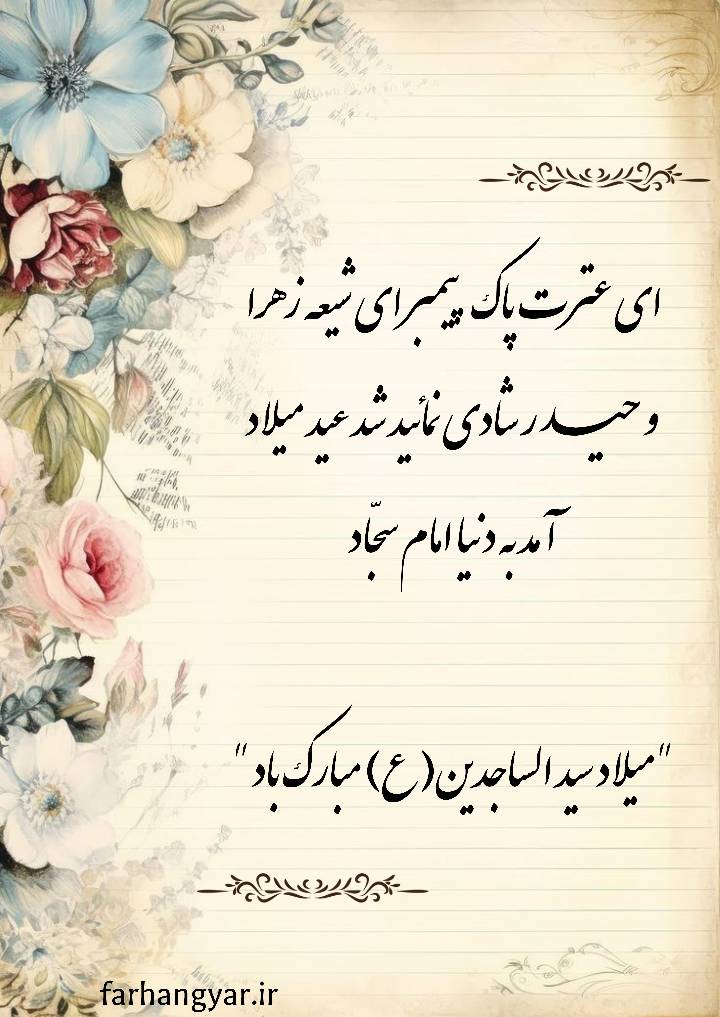 ای عترت پاک پیمبر ای شیعه زهرا
و حیدر شادی نمائید شد عید میلاد
آمد به دنیا امام سجّاد
"میلاد سید الساجدین (ع) مبارک باد"
farhangyar.ir